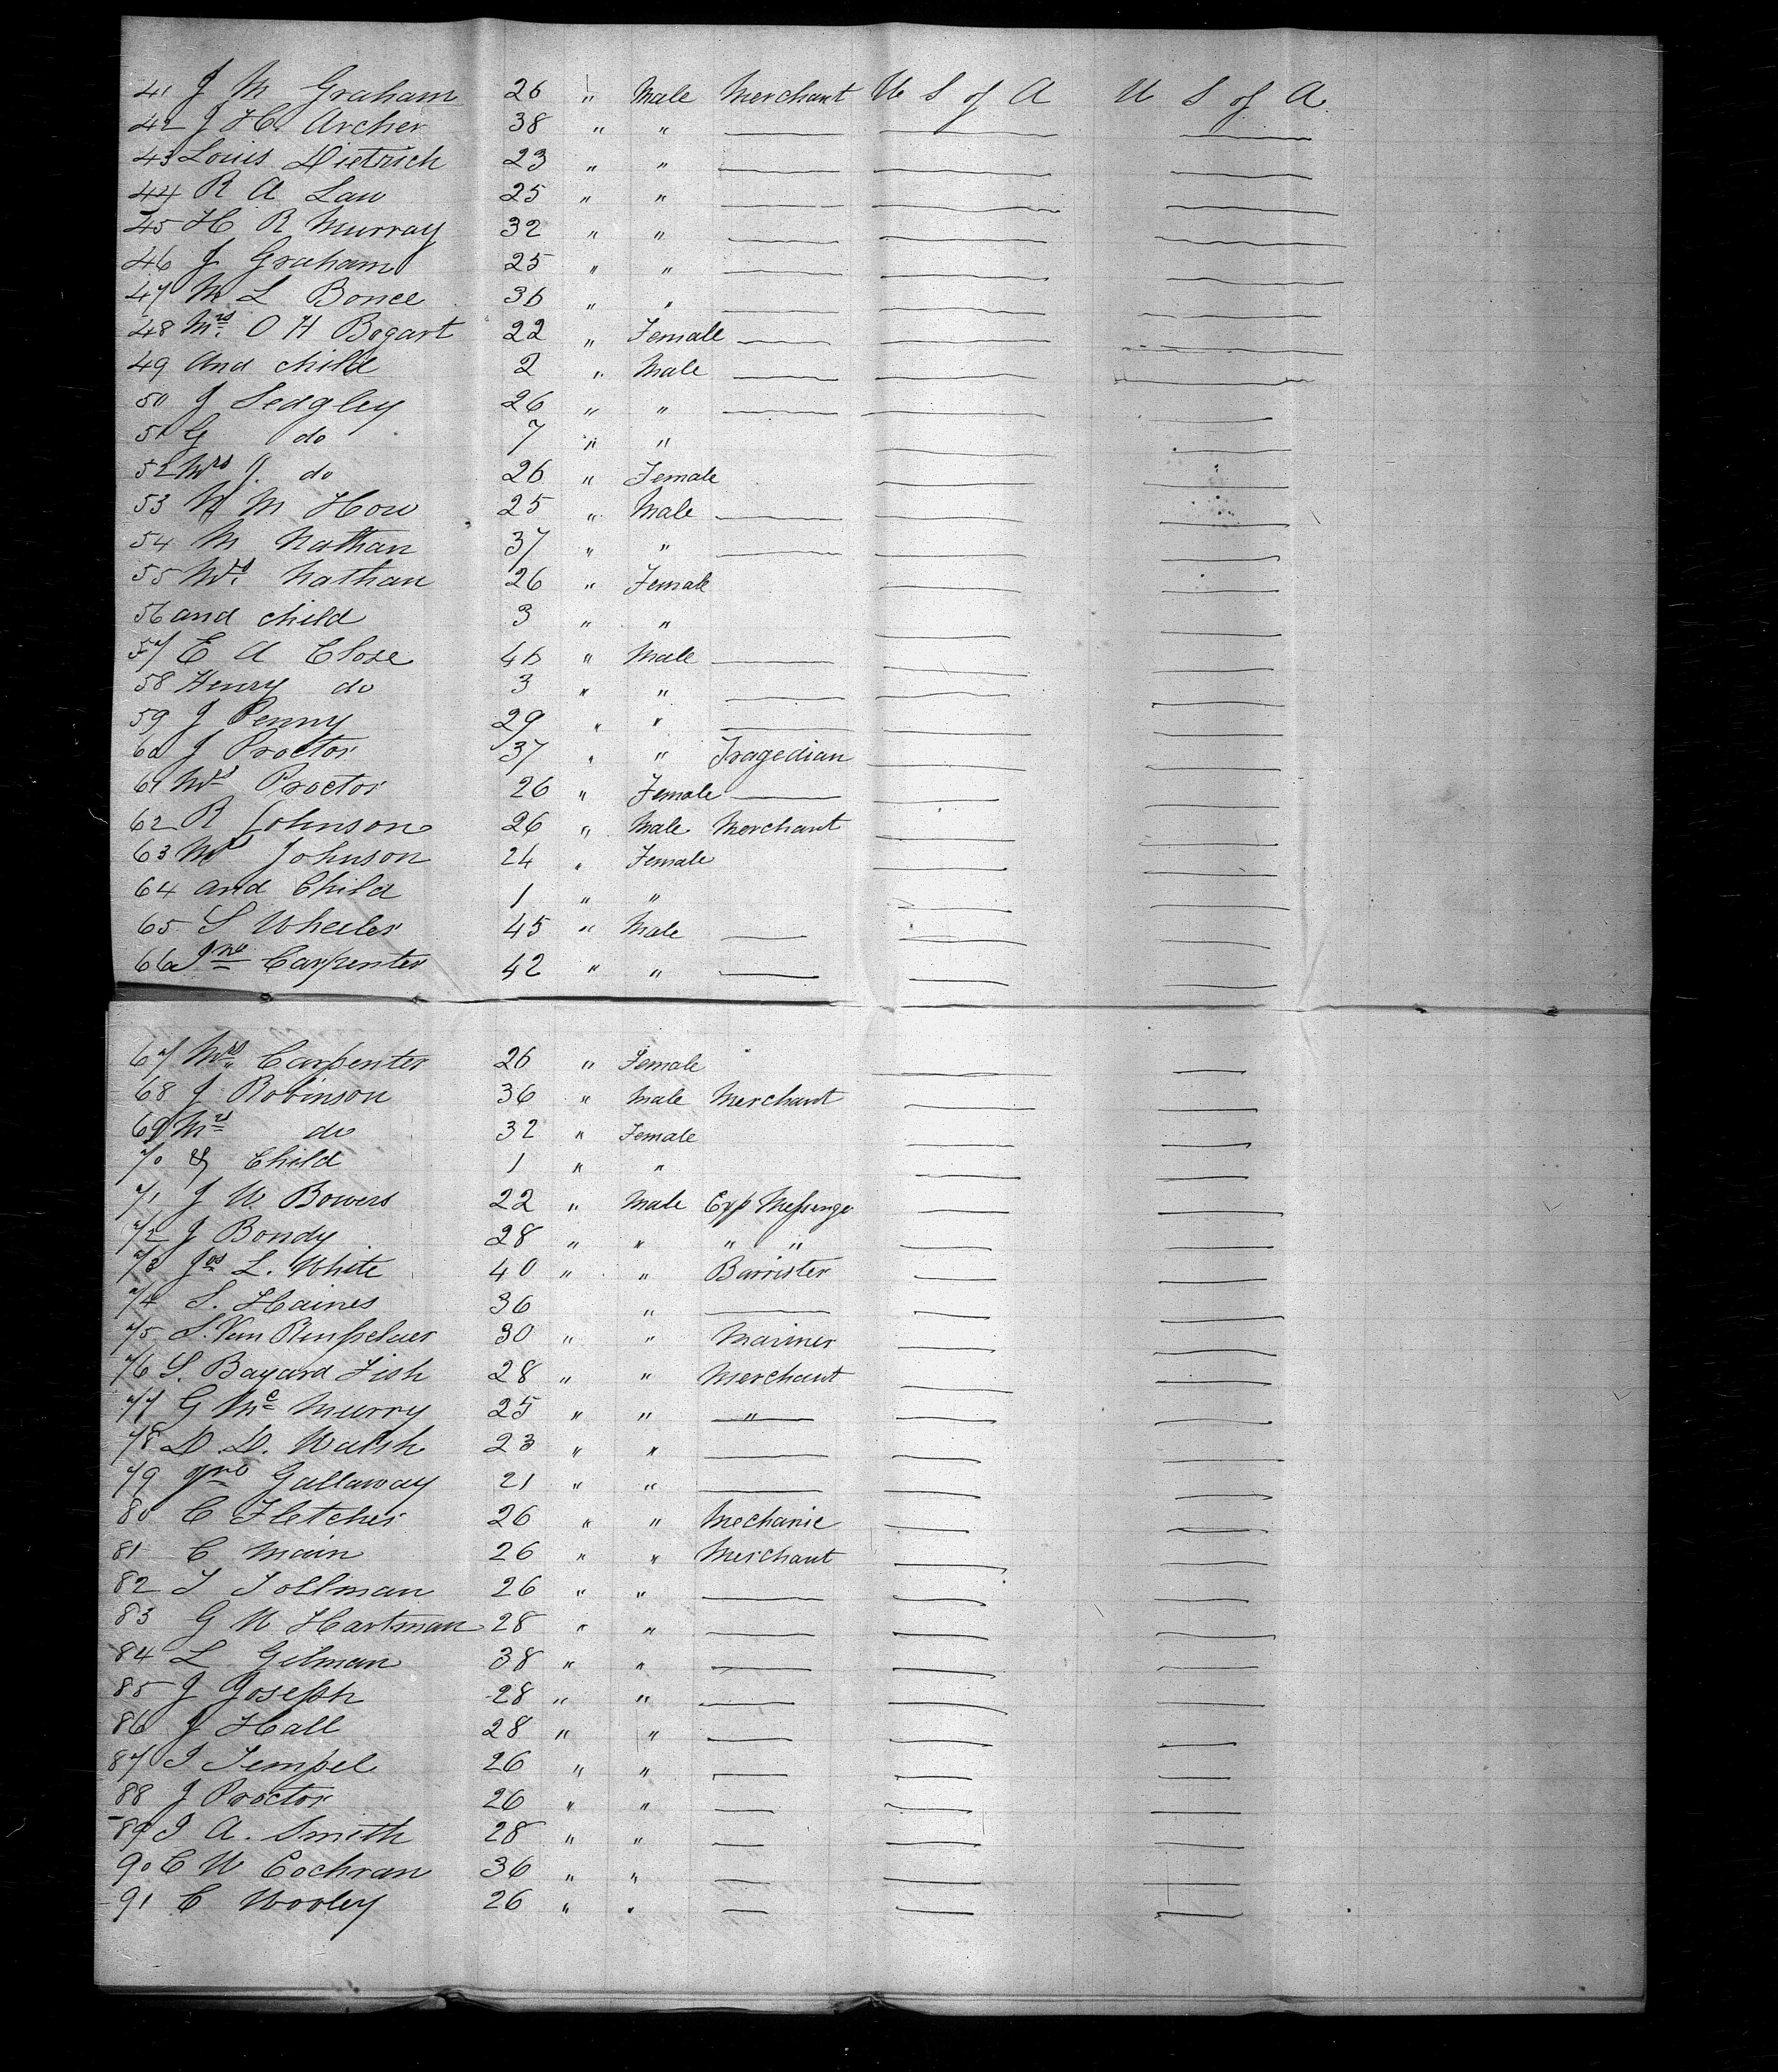 41 J M Graham 26 " Male Merchant U S of A U S of A
42 J H. Archer 38 " "
43 Louis Dietrich 23 " "
44 R A Law 25 " "
45 H R Murray 32 " "
46 J Graham 25 " "
47 M L Bonce 36 " "
48 Mrs. O H Bogart 22 " Female
49 And child 2 " Male
50 J Sedgley 26 " "
51 G do 7 " "
52 Mrs J. do 26 " Female
53 W M How 25 " Male
54 M Nathan 37 " "
55 Mrs. Nathan 26 " Female
56 and child 3 " "
57 E A Close 46 " Male
58 Henry do 3 " "
59 J Penny 29 " "
60 J Proctor 37 " " Tragedian
61 Mrs Proctor 26 " Female
62 R Johnson 26 " Male Merchant
63 Mrs Johnson 24 " Female
64 and Child 1 " "
65 S Wheeler 45 " Male
66 Jno Carpenter 42 " "
67 Mrs. Carpenter 26 " Female
68 J Robinson 36 " Male Merchant
69 Mrs do 32 " Female
70 & Child 1 " "
71 J W. Bowers 22 " Male Exp Messenge
72 J Bondy 28 " " " "
73 Jos L. White 40 " " Barrister
74 S. Haines 36 "
75 S. Van Rensselaer 30 " " Mariner
76 S. Bayard Fish 28 " " Merchant
77 G Mc Murry 25 " " "
78 D. D. Walsh 23 " "
79 Jno Gallaway 21 " "
80 C Fletcher 26 " " Mechanic
81 C Main 26 " " Merchant
82 T Tollman 26 " "
83 G W Hartman 28 " "
84 L Gilman 38 " "
85 J Joseph 28 " "
86 J Hall 28 " "
87 I Tempel 26 " "
88 J Proctor 26 " "
89 I A. Smith 28 " "
90 C W Cochran 36 " "
91 C Wooley 26 " "